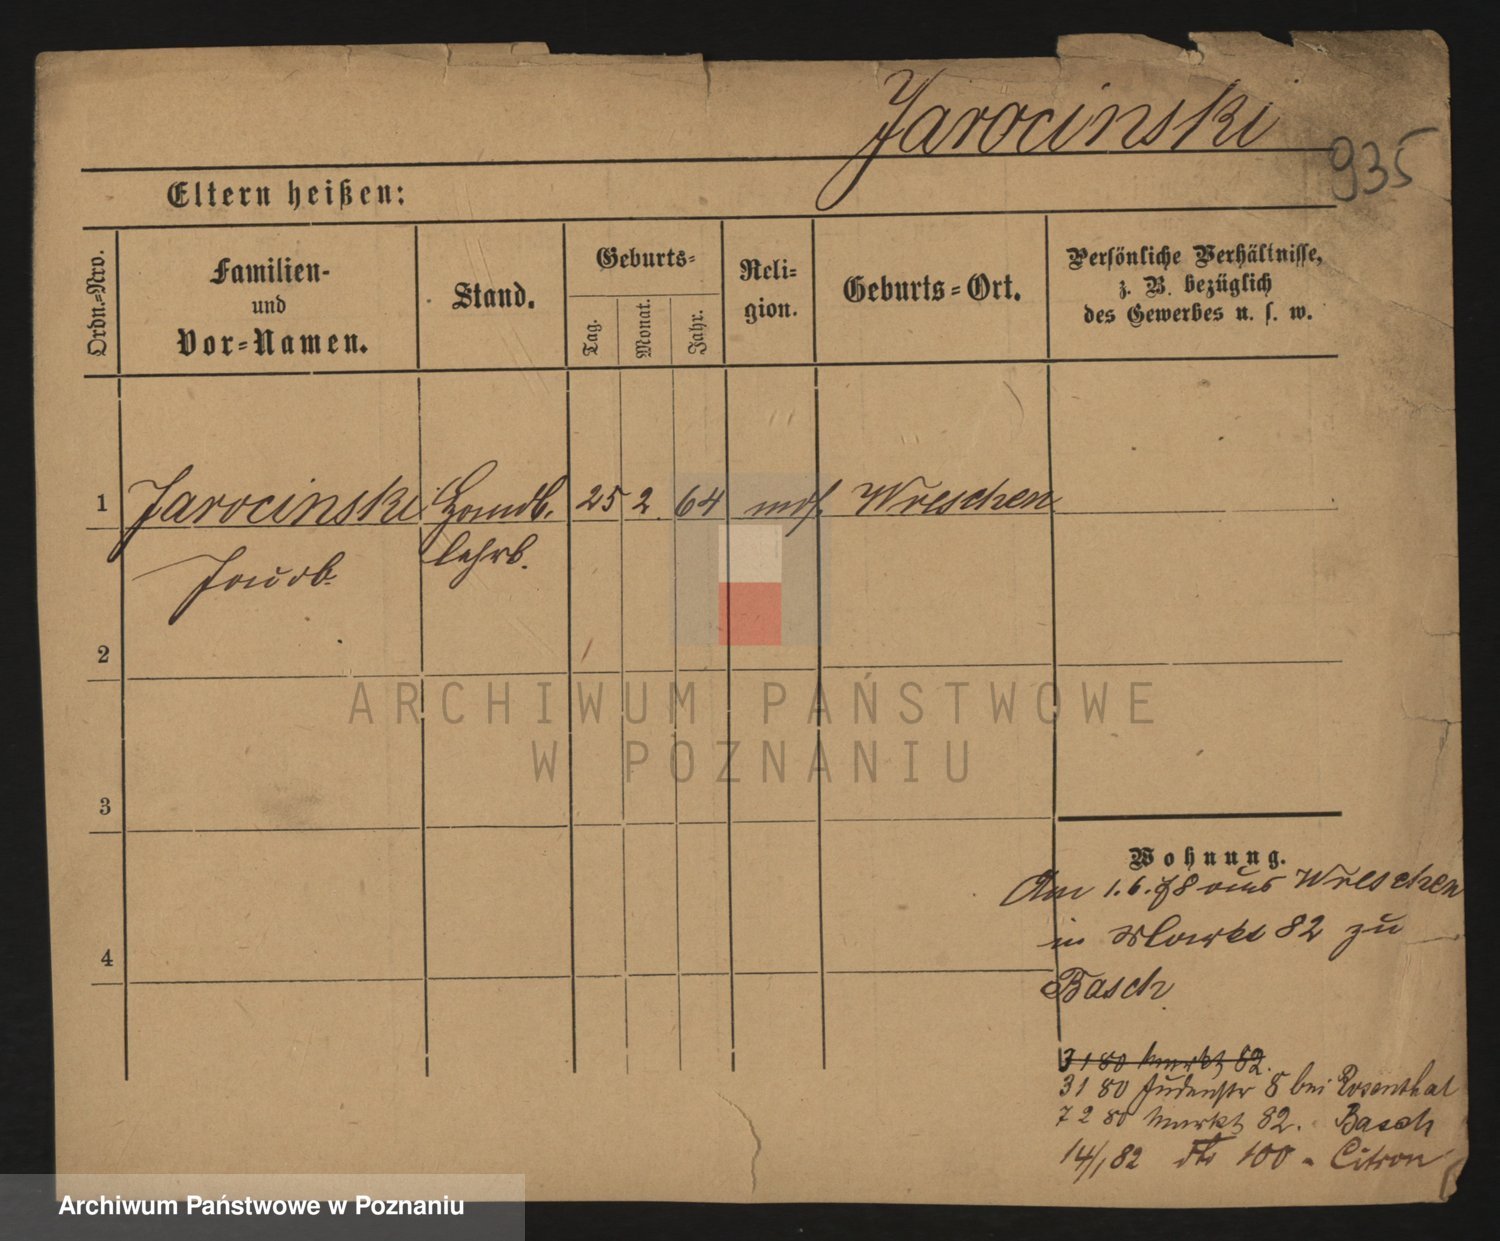 Jarocinski
935
Eltern heißen:
Ordn.-Nro.
Familien-
und
Vor-Namen.
Stand.
Geburts-
Tag.
Monat.
Jahr.
Reli-
gion.
Geburts-Ort.
Persönliche Verhältnisse,
z. B. bezüglich
des Gewerbes u. s. w.
1 Jarocinski Handl. 25 2 64 mos. Wreschen
Jacob lehrl.
2
3
4
Wohnung.
Am 1.6.78 aus Wreschen
in Markt 82 zu
Basch
3 1 80 Markt 82.
3 1 80 Judenstr 8 bei Rosenthal
7 2 80 Markt 82. Basch
14/1 82 dto 100 - Citron
ARCHIWUM PAŃSTWOWE
W POZNANIU
Archiwum Państwowe w Poznaniu